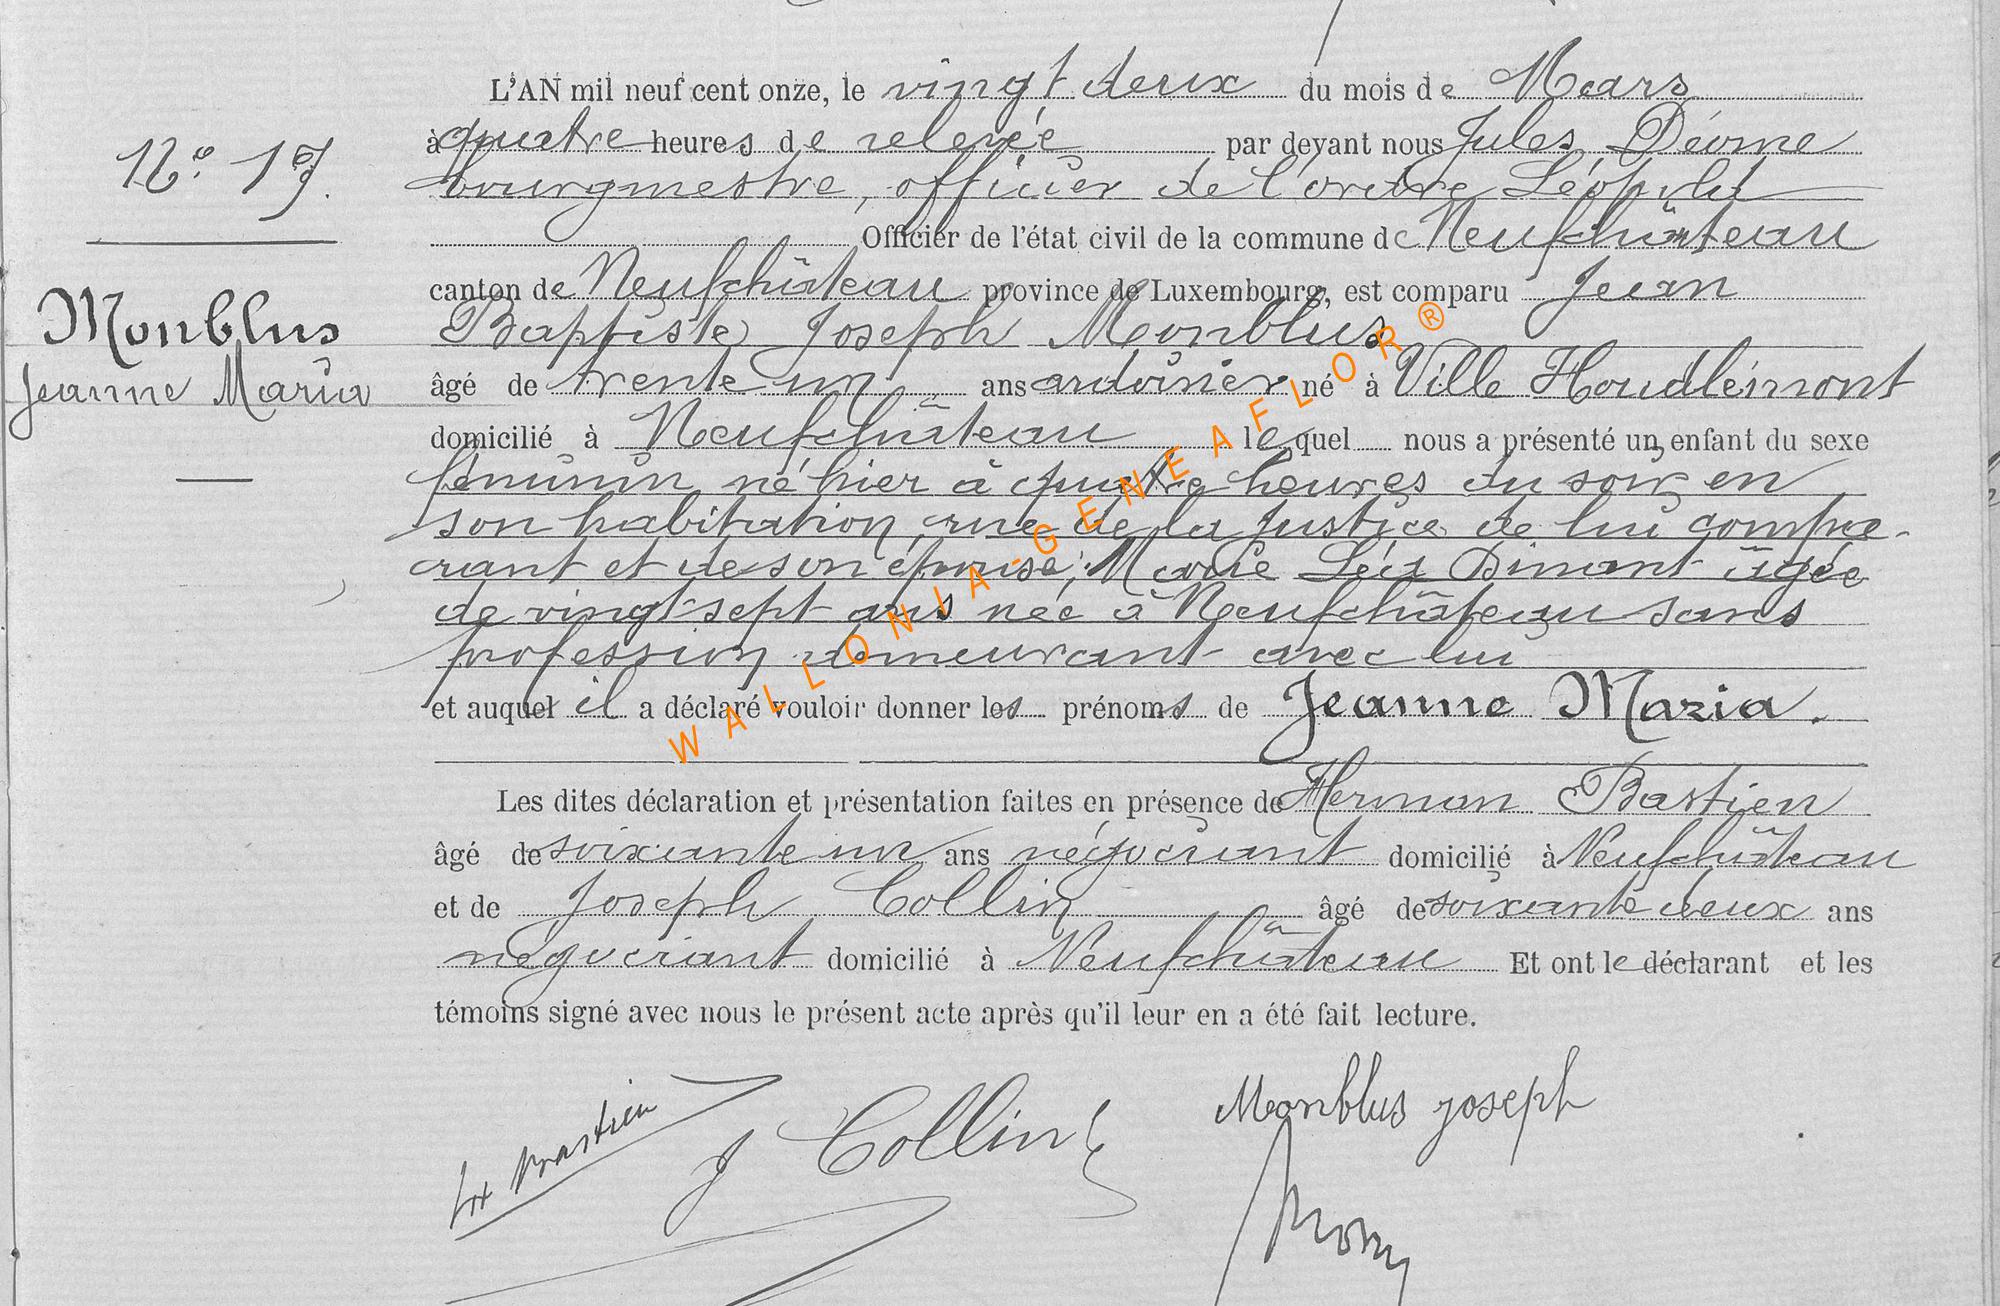 L'AN mil neuf cent onze, le vingt deux du mois de Mars
N° 17.
à quatre heures de relevée par devant nous Jules
bourgmestre, officier de l'ordre Léopold
Officier de l'état civil de la commune de Neufchâteau
canton de Neufchâteau province de Luxembourg, est comparu Jean
Monblus
Baptiste Joseph Monblus
Jeanne Maria
âgé de trente un ans ardoisier né à Ville Houdlémont
domicilié à Neufchâteau lequel nous a présenté un enfant du sexe
féminin né hier à quatre heures du soir en
son habitation, rue de la Justice de lui compa-
rant et de son épouse, Marie Léa Dinant âgée
de vingt sept ans née à Neufchâteau sans
profession demeurant avec lui
et auquel il a déclaré vouloir donner les prénoms de Jeanne Maria.
Les dites déclaration et présentation faites en présence de Herman Bastien
âgé de soixante un ans négociant domicilié à Neufchâteau
et de Joseph Collin âgé de soixante deux ans
négociant domicilié à Neufchâteau Et ont le déclarant et les
témoins signé avec nous le présent acte après qu'il leur en a été fait lecture.
Bastien
J Collin
Monblus joseph
WALLONIA-GENEAFLOR ®